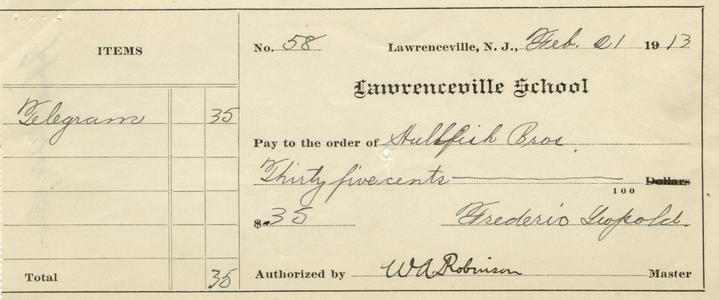 ITEMS
Telegram 35
Total 35
No. 58 Lawrenceville, N. J., Feb. 21 1913
Lawrenceville School
Pay to the order of Hullfish Bros.
Thirty five cents 100 Dollars
$.35 Frederic Leopold.
Authorized by W.A. Robinson Master